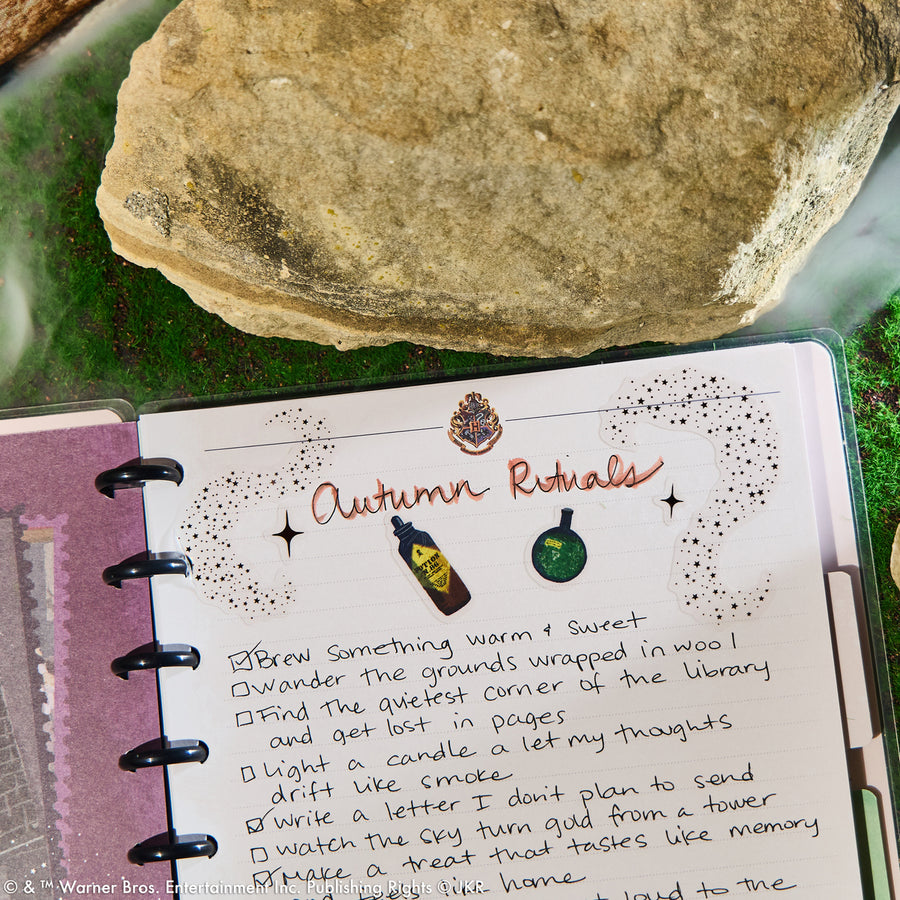 Autumn Rituals
POTION
No. 86
☑ Brew something warm & sweet
☐ Wander the grounds wrapped in wool
☐ Find the quietest corner of the library
and get lost in pages
☐ Light a candle a let my thoughts
drift like smoke
☑ Write a letter I don't plan to send
☐ Watch the sky turn gold from a tower
☑ Make a treat that tastes like memory
and feels like home
loud to the
© & ™ Warner Bros. Entertainment Inc. Publishing Rights © JKR